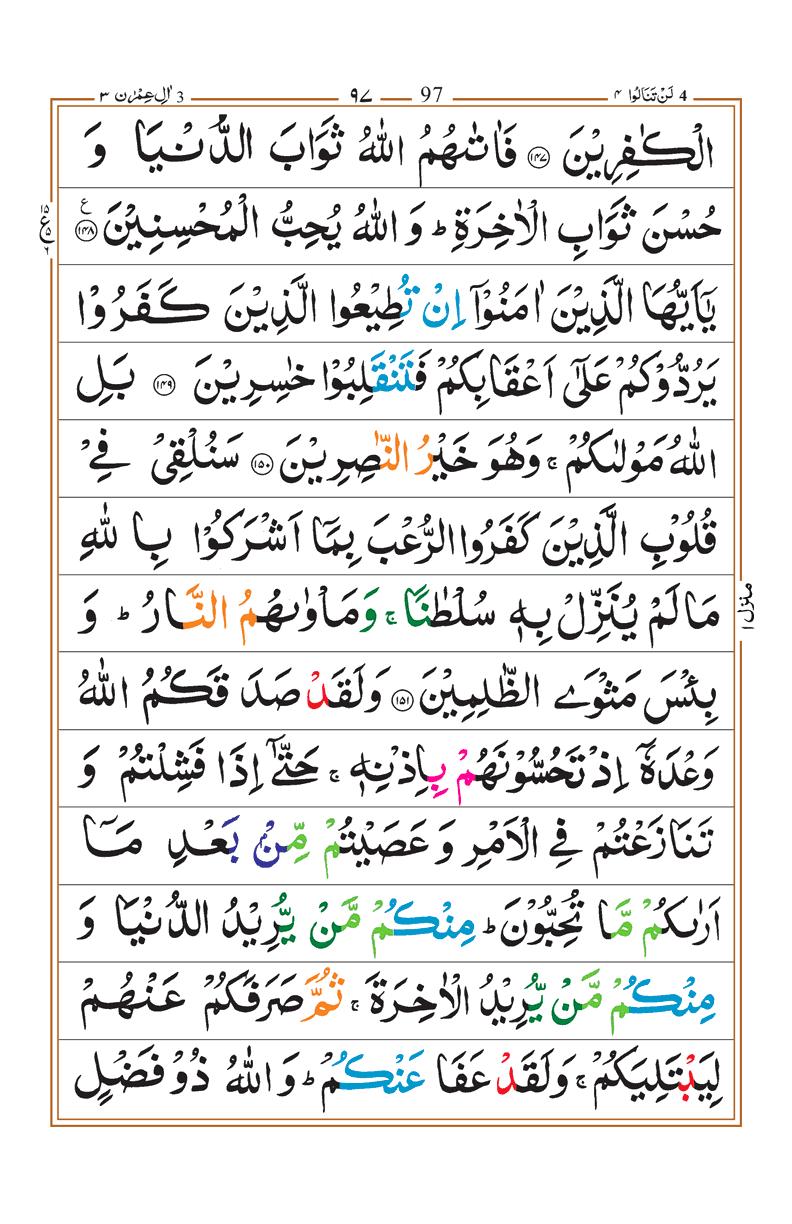 3 اٰلِ عِمْرٰن ٣ ٩٧ 97 لَنْ تَنَالُوا ٤ 4
الْكٰفِرِيْنَ ﴿۱۴۷﴾ فَاٰتٰىهُمُ اللّٰهُ ثَوَابَ الدُّنْيَا وَ
حُسْنَ ثَوَابِ الْاٰخِرَةِ ؕ وَ اللّٰهُ يُحِبُّ الْمُحْسِنِيْنَ ﴿۱۴۸﴾ ع
يٰۤاَيُّهَا الَّذِيْنَ اٰمَنُوْۤا اِنْ تُطِيْعُوا الَّذِيْنَ كَفَرُوْا
يَرُدُّوْكُمْ عَلٰۤى اَعْقَابِكُمْ فَتَنْقَلِبُوْا خٰسِرِيْنَ ﴿۱۴۹﴾ بَلِ
اللّٰهُ مَوْلٰىكُمْ ۚ وَهُوَ خَيْرُ النّٰصِرِيْنَ ﴿۱۵۰﴾ سَنُلْقِيْ فِيْ
قُلُوْبِ الَّذِيْنَ كَفَرُوا الرُّعْبَ بِمَاۤ اَشْرَكُوْا بِاللّٰهِ
مَا لَمْ يُنَزِّلْ بِهٖ سُلْطٰنًا ۚ وَمَاْوٰىهُمُ النَّارُ ؕ وَ
بِئْسَ مَثْوَى الظّٰلِمِيْنَ ﴿۱۵۱﴾ وَلَقَدْ صَدَقَكُمُ اللّٰهُ
وَعْدَهٗۤ اِذْ تَحُسُّوْنَهُمْ بِاِذْنِهٖ ۚ حَتّٰۤى اِذَا فَشِلْتُمْ وَ
تَنَازَعْتُمْ فِي الْاَمْرِ وَ عَصَيْتُمْ مِّنْۢ بَعْدِ مَاۤ
اَرٰىكُمْ مَّا تُحِبُّوْنَ ؕ مِنْكُمْ مَّنْ يُّرِيْدُ الدُّنْيَا وَ
مِنْكُمْ مَّنْ يُّرِيْدُ الْاٰخِرَةَ ۚ ثُمَّ صَرَفَكُمْ عَنْهُمْ
لِيَبْتَلِيَكُمْ ۚ وَلَقَدْ عَفَا عَنْكُمْ ؕ وَ اللّٰهُ ذُوْ فَضْلٍ
منزل ۱